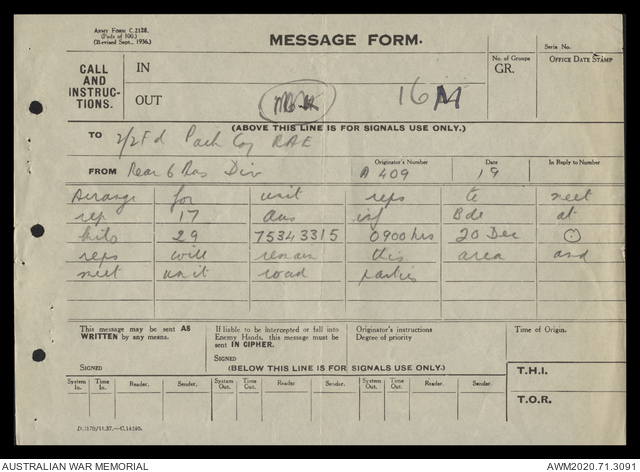 ARMY FORM C.2128.
(Pads of 100.)
(Revised Sept., 1936.)
MESSAGE FORM.
Serial No.
CALL AND INSTRUC-TIONS.
IN
OUT
16 M
No. of Groups
GR.
OFFICE DATE STAMP
(ABOVE THIS LINE IS FOR SIGNALS USE ONLY.)
TO 2/2 Fd Park Coy RAE
FROM Rear 6 Aus Div
Originator's Number
A 409
Date
19
In Reply to Number
Arrange for unit reps to meet
rep 17 Aus inf Bde at
kilo 29 75343315 0900 hrs 20 Dec ⊙
reps will remain this area and
meet unit road parties
This message may be sent AS WRITTEN by any means.
SIGNED
If liable to be intercepted or fall into Enemy Hands, this message must be sent IN CIPHER.
SIGNED
Originator's instructions
Degree of priority
Time of Origin.
(BELOW THIS LINE IS FOR SIGNALS USE ONLY.)
T.H.I.
System In. Time In. Reader. Sender. System Out. Time Out. Reader Sender. System Out. Time Out. Reader. Sender.
T.O.R.
AUSTRALIAN WAR MEMORIAL
AWM2020.71.3091